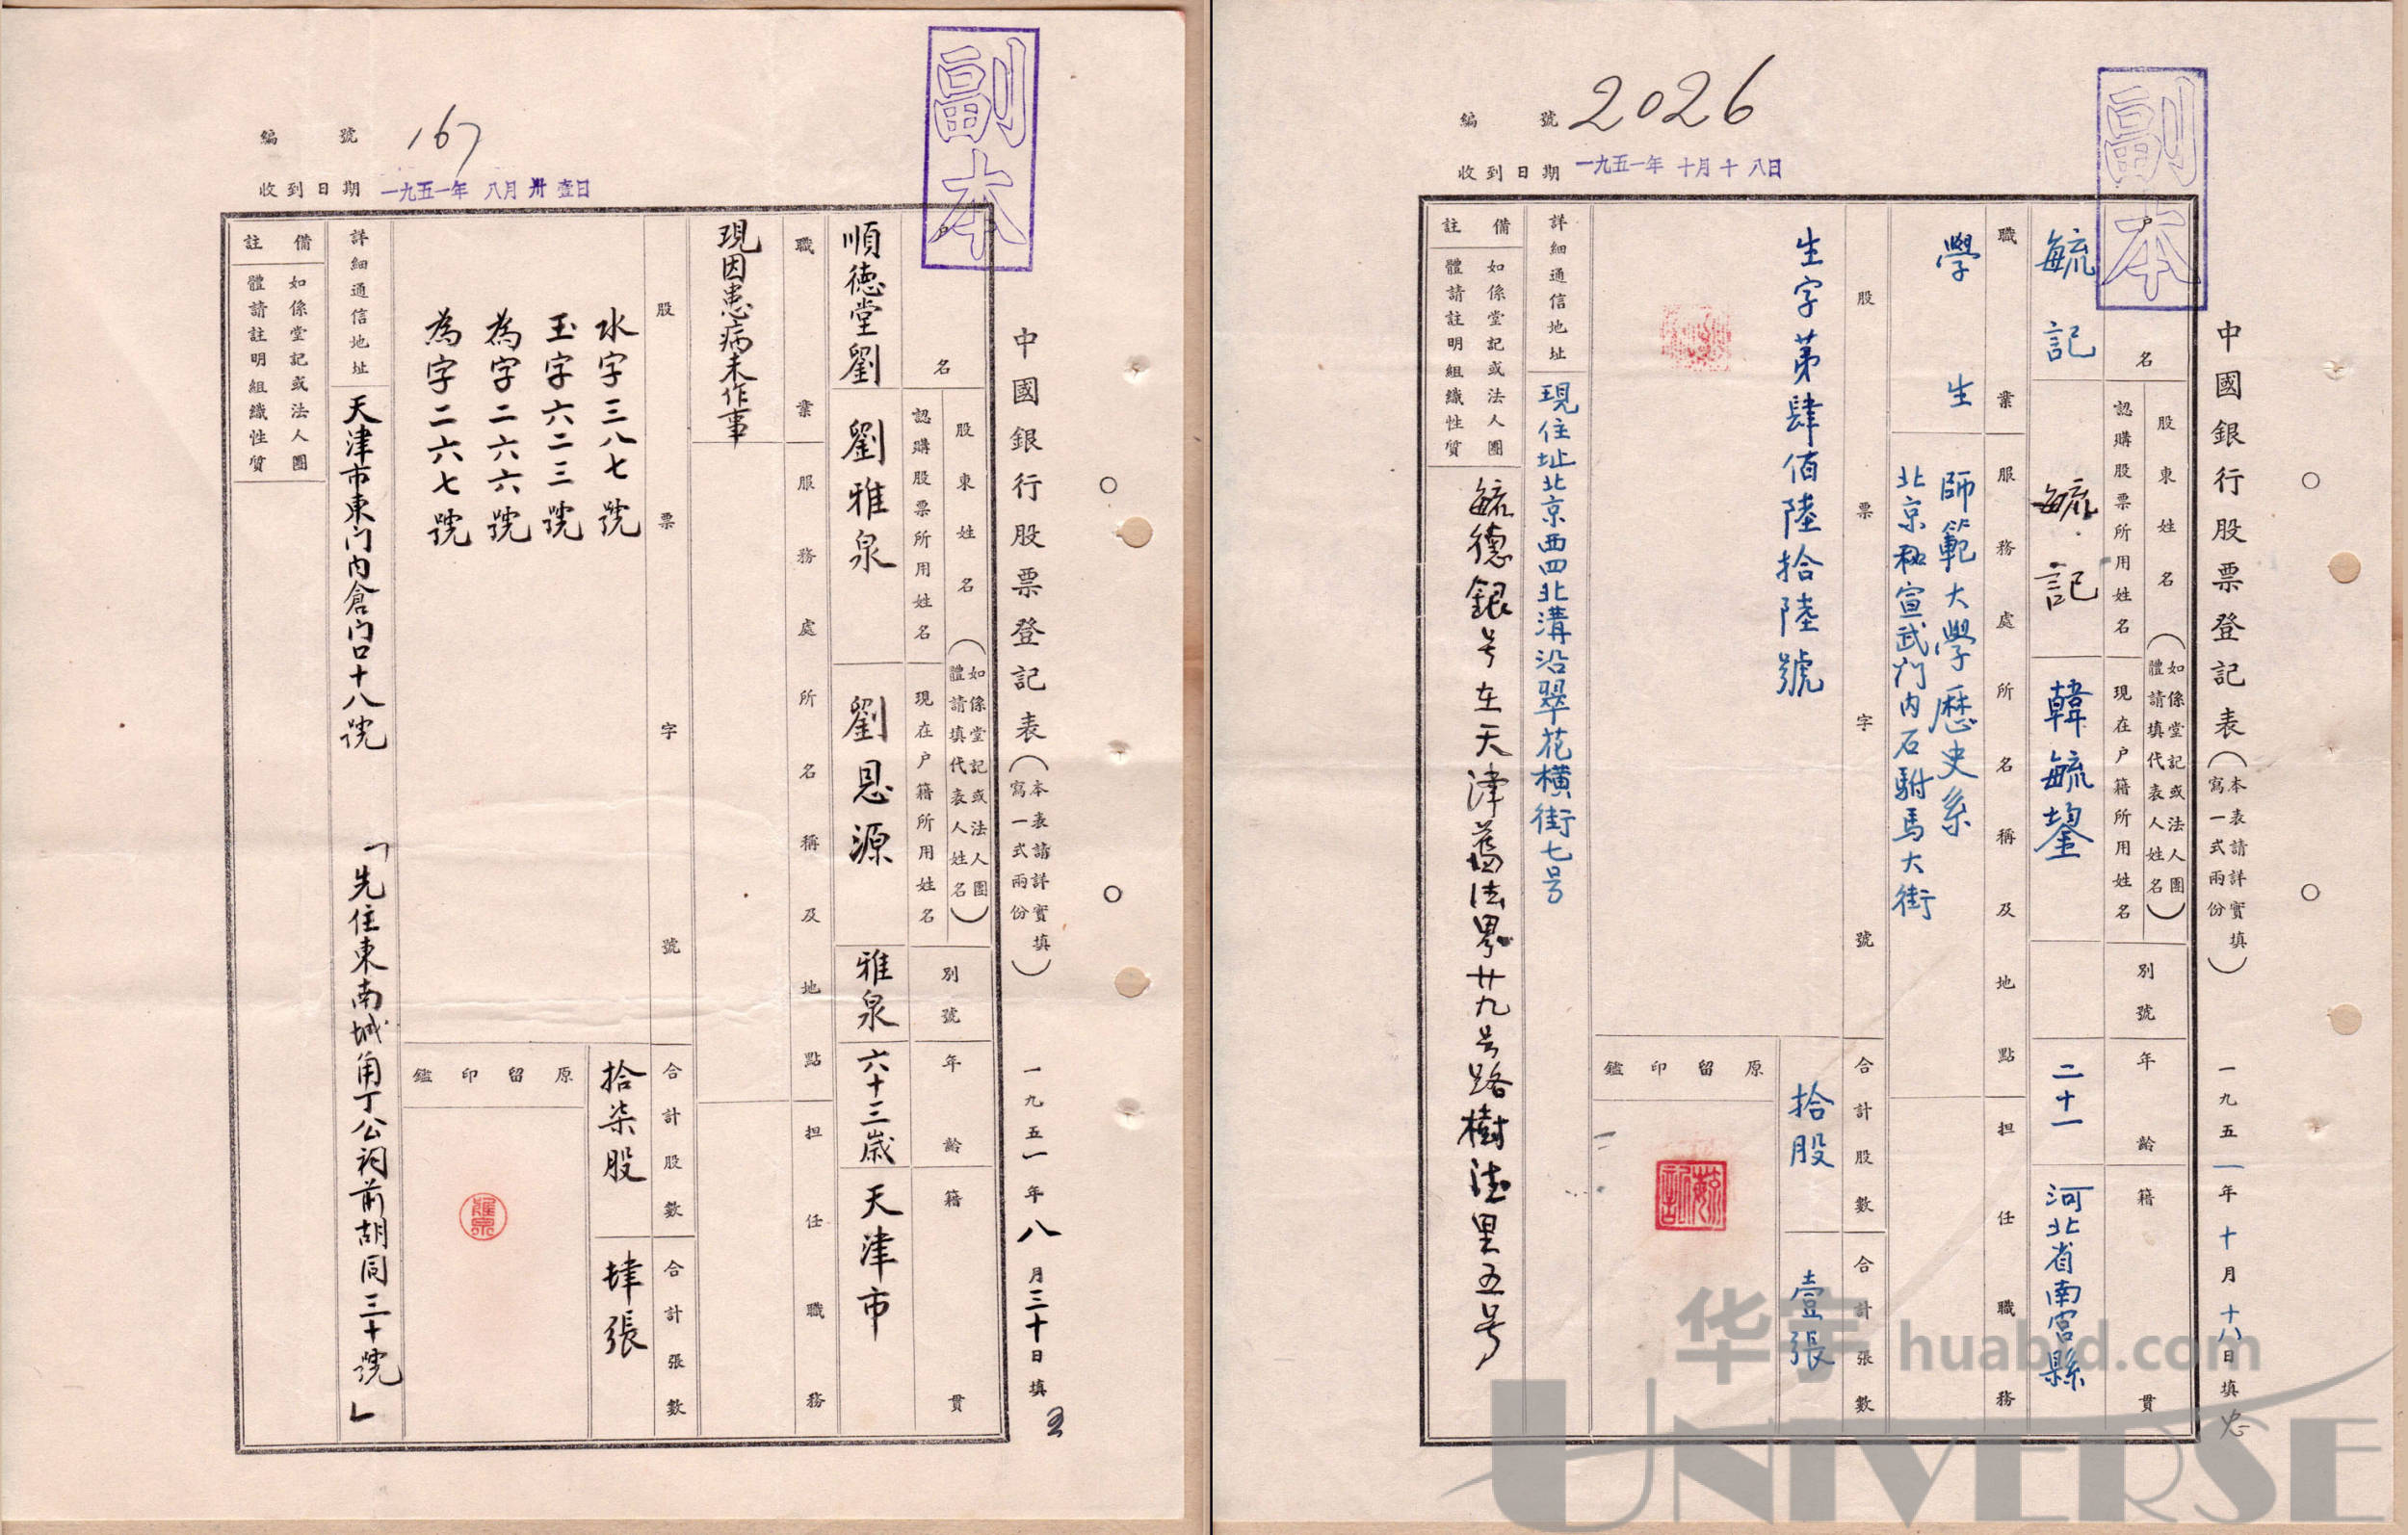 副本
編號 167
收到日期 一九五一年 八月 卅 壹日
中國銀行股票登記表(本表請詳實填寫一式兩份) 一九五一年八月三十日填
戶名
順德堂劉
股東姓名(如係堂記或法人團體請填代表人姓名)
認購股票所用姓名
劉雅泉
現在戶籍所用姓名
劉恩源
別號
雅泉
年齡
六十三歲
籍貫
天津市
職業
現因患病未作事
服務處所名稱及地點
担任職務
股票字號
水字三八七號
玉字六二三號
為字二六六號
為字二六七號
合計股數
拾柒股
合計張數
肆張
原留印鑑
雅泉
詳細通信地址
天津市東门內倉门口十八號
「先住東南城角丁公祠前胡同三十號」
備註
如係堂記或法人團
體請註明組織性質
副本
編號 2026
收到日期 一九五一年 十月 十 八日
中國銀行股票登記表(本表請詳實填寫一式兩份) 一九五一年十月十八日填
戶名
毓記
股東姓名(如係堂記或法人團體請填代表人姓名)
認購股票所用姓名
毓記
現在戶籍所用姓名
韓毓鋆
別號
年齡
二十一
籍貫
河北省南宮縣
職業
學生
服務處所名稱及地點
師範大學歷史系
北京和宣武门內石駙馬大街
担任職務
股票字號
生字第肆佰陸拾陸號
合計股數
拾股
合計張數
壹張
原留印鑑
毓記
詳細通信地址
現住址北京西四北溝沿翠花橫街七号
備註
如係堂記或法人團
體請註明組織性質
毓德銀号在天津舊法界廿九号路樹德里五号
华宇 huabid.com
UNIVERSE